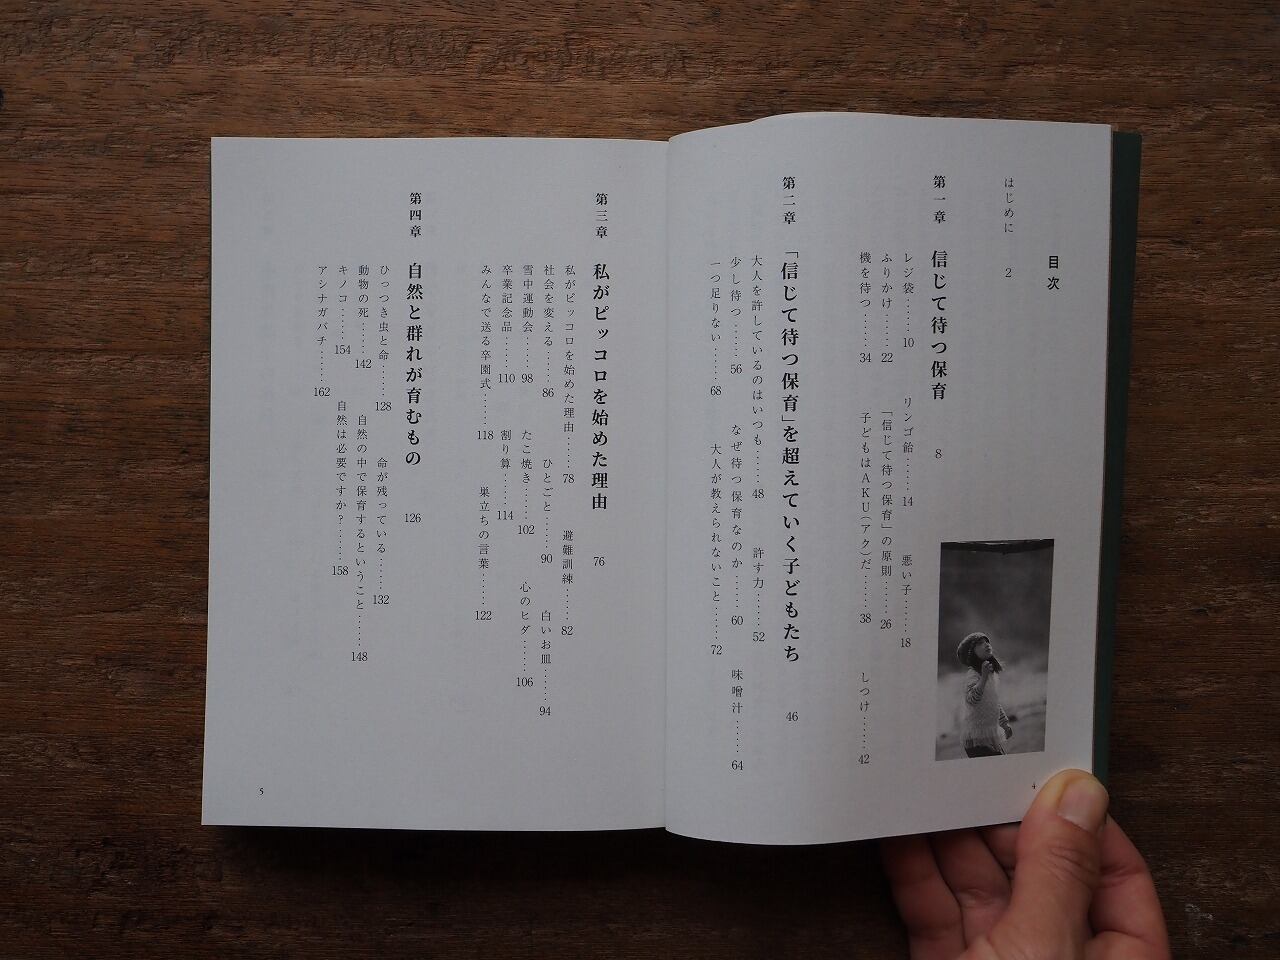 目次
はじめに 2
第一章 信じて待つ保育 8
レジ袋……10 リンゴ飴……14 悪い子……18
ふりかけ……22 「信じて待つ保育」の原則……26
機を待つ……34 子どもはAKU(アク)だ……38 しつけ……42
第二章 「信じて待つ保育」を超えていく子どもたち 46
大人を許しているのはいつも……48 許す力……52
少し待つ……56 なぜ待つ保育なのか……60 味噌汁……64
一つ足りない……68 大人が教えられないこと……72
4
第三章 私がピッコロを始めた理由 76
私がピッコロを始めた理由……78 避難訓練……82
社会を変える……86 ひとごと……90 白いお皿……94
雪中運動会……98 たこ焼き……102 心のヒダ……106
卒業記念品……110 割り算……114
みんなで送る卒園式……118 巣立ちの言葉……122
第四章 自然と群れが育むもの 126
ひっつき虫と命……128 命が残っている……132
動物の死……142 自然の中で保育するということ……148
キノコ……154 自然は必要ですか?……158
アシナガバチ……162
5